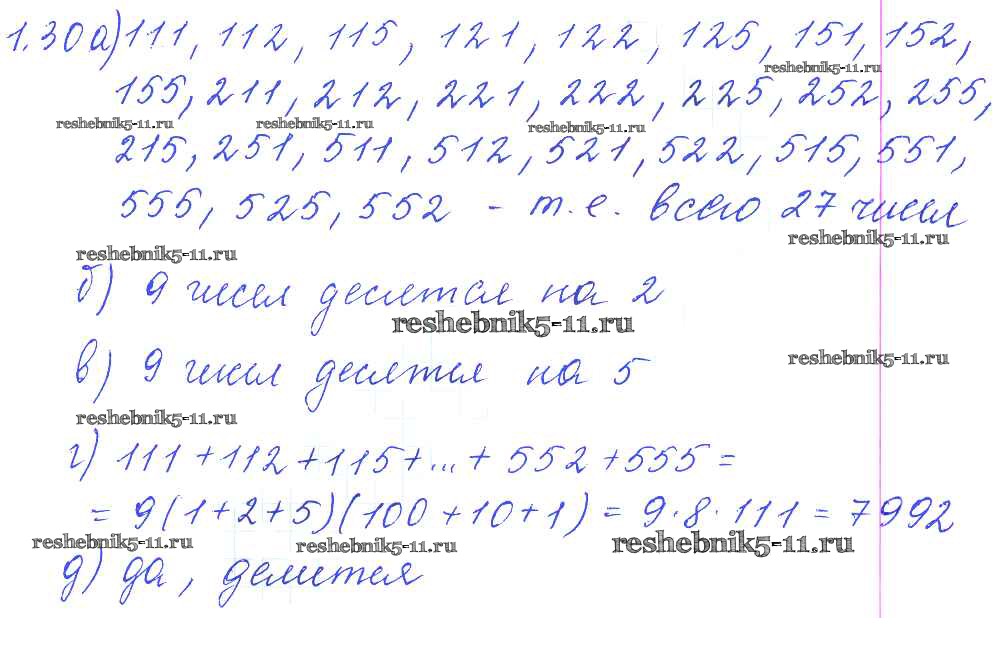 1.30 а) 111, 112, 115, 121, 122, 125, 151, 152,
reshebnik5-11.ru
155, 211, 212, 221, 222, 225, 252, 255,
reshebnik5-11.ru reshebnik5-11.ru reshebnik5-11.ru
215, 251, 511, 512, 521, 522, 515, 551,
555, 525, 552 - т.е. всего 27 чисел
reshebnik5-11.ru reshebnik5-11.ru
б) 9 чисел делятся на 2
reshebnik5-11.ru
в) 9 чисел делятся на 5
reshebnik5-11.ru
reshebnik5-11.ru
г) 111 + 112 + 115 + ... + 552 + 555 =
= 9(1+2+5)(100+10+1) = 9·8·111 = 7992
reshebnik5-11.ru reshebnik5-11.ru reshebnik5-11.ru
д) да, делится